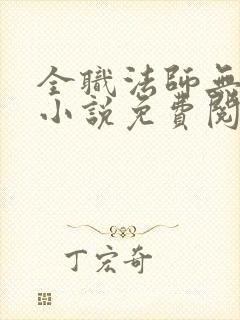 全職法師無
小說免費閱
丁宏奇